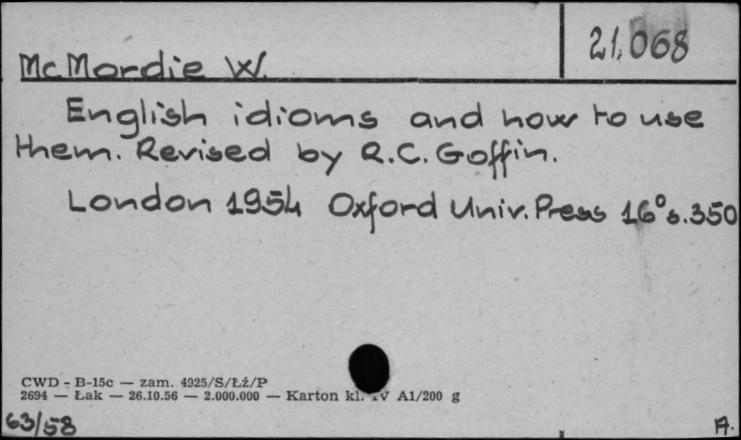 21.068
McMordie W.
English idioms and how to use
them. Revised by R.C. Goffin.
London 1954 Oxford Univ. Press 16° s. 350
CWD - B-15c — zam. 4925/S/Łź/P
2694 — Łak — 26.10.56 — 2.000.000 — Karton kl. IV A1/200 g
63/58
A.